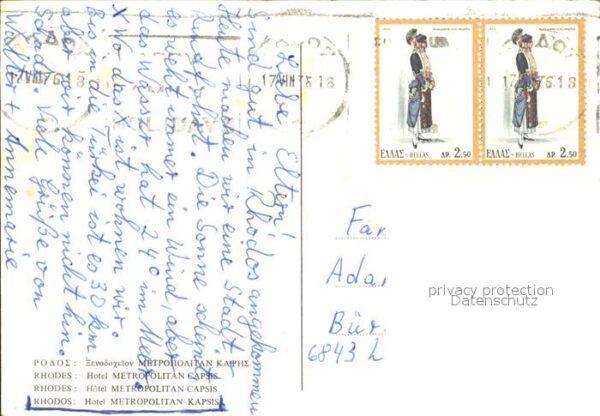 Liebe Eltern!
Sind gut in Rhodos angekommen
Heute machen wir eine Stadt-
rundfahrt. Die Sonne scheint
es zieht immer ein Wind, aber
das Wasser hat 24° im Meer.
X Wo das X ist wohnen wir.
Bis in die Türkei ist es 30 km
aber wir können nicht hin.
Schade. Viele Grüße von
Walter + Annemarie
17 VIII 76. 18
17 VIII 76 18
17 76. 18
ΕΛΛΑΣ - HELLAS ΔΡ. 2.50
ΕΛΛΑΣ - HELLAS ΔΡ. 2.50
Fam
Ada
Bür
6843
privacy protection
Datenschutz
ΡΟΔΟΣ: Ξενοδοχεῖον ΜΕΤΡΟΠΟΛΙΤΑΝ ΚΑΨΗΣ
RHODES: Hotel METROPOLITAN CAPSIS
RHODES: Hôtel METROPOLITAN CAPSIS
RHODOS: Hotel METROPOLITAN KAPSIS